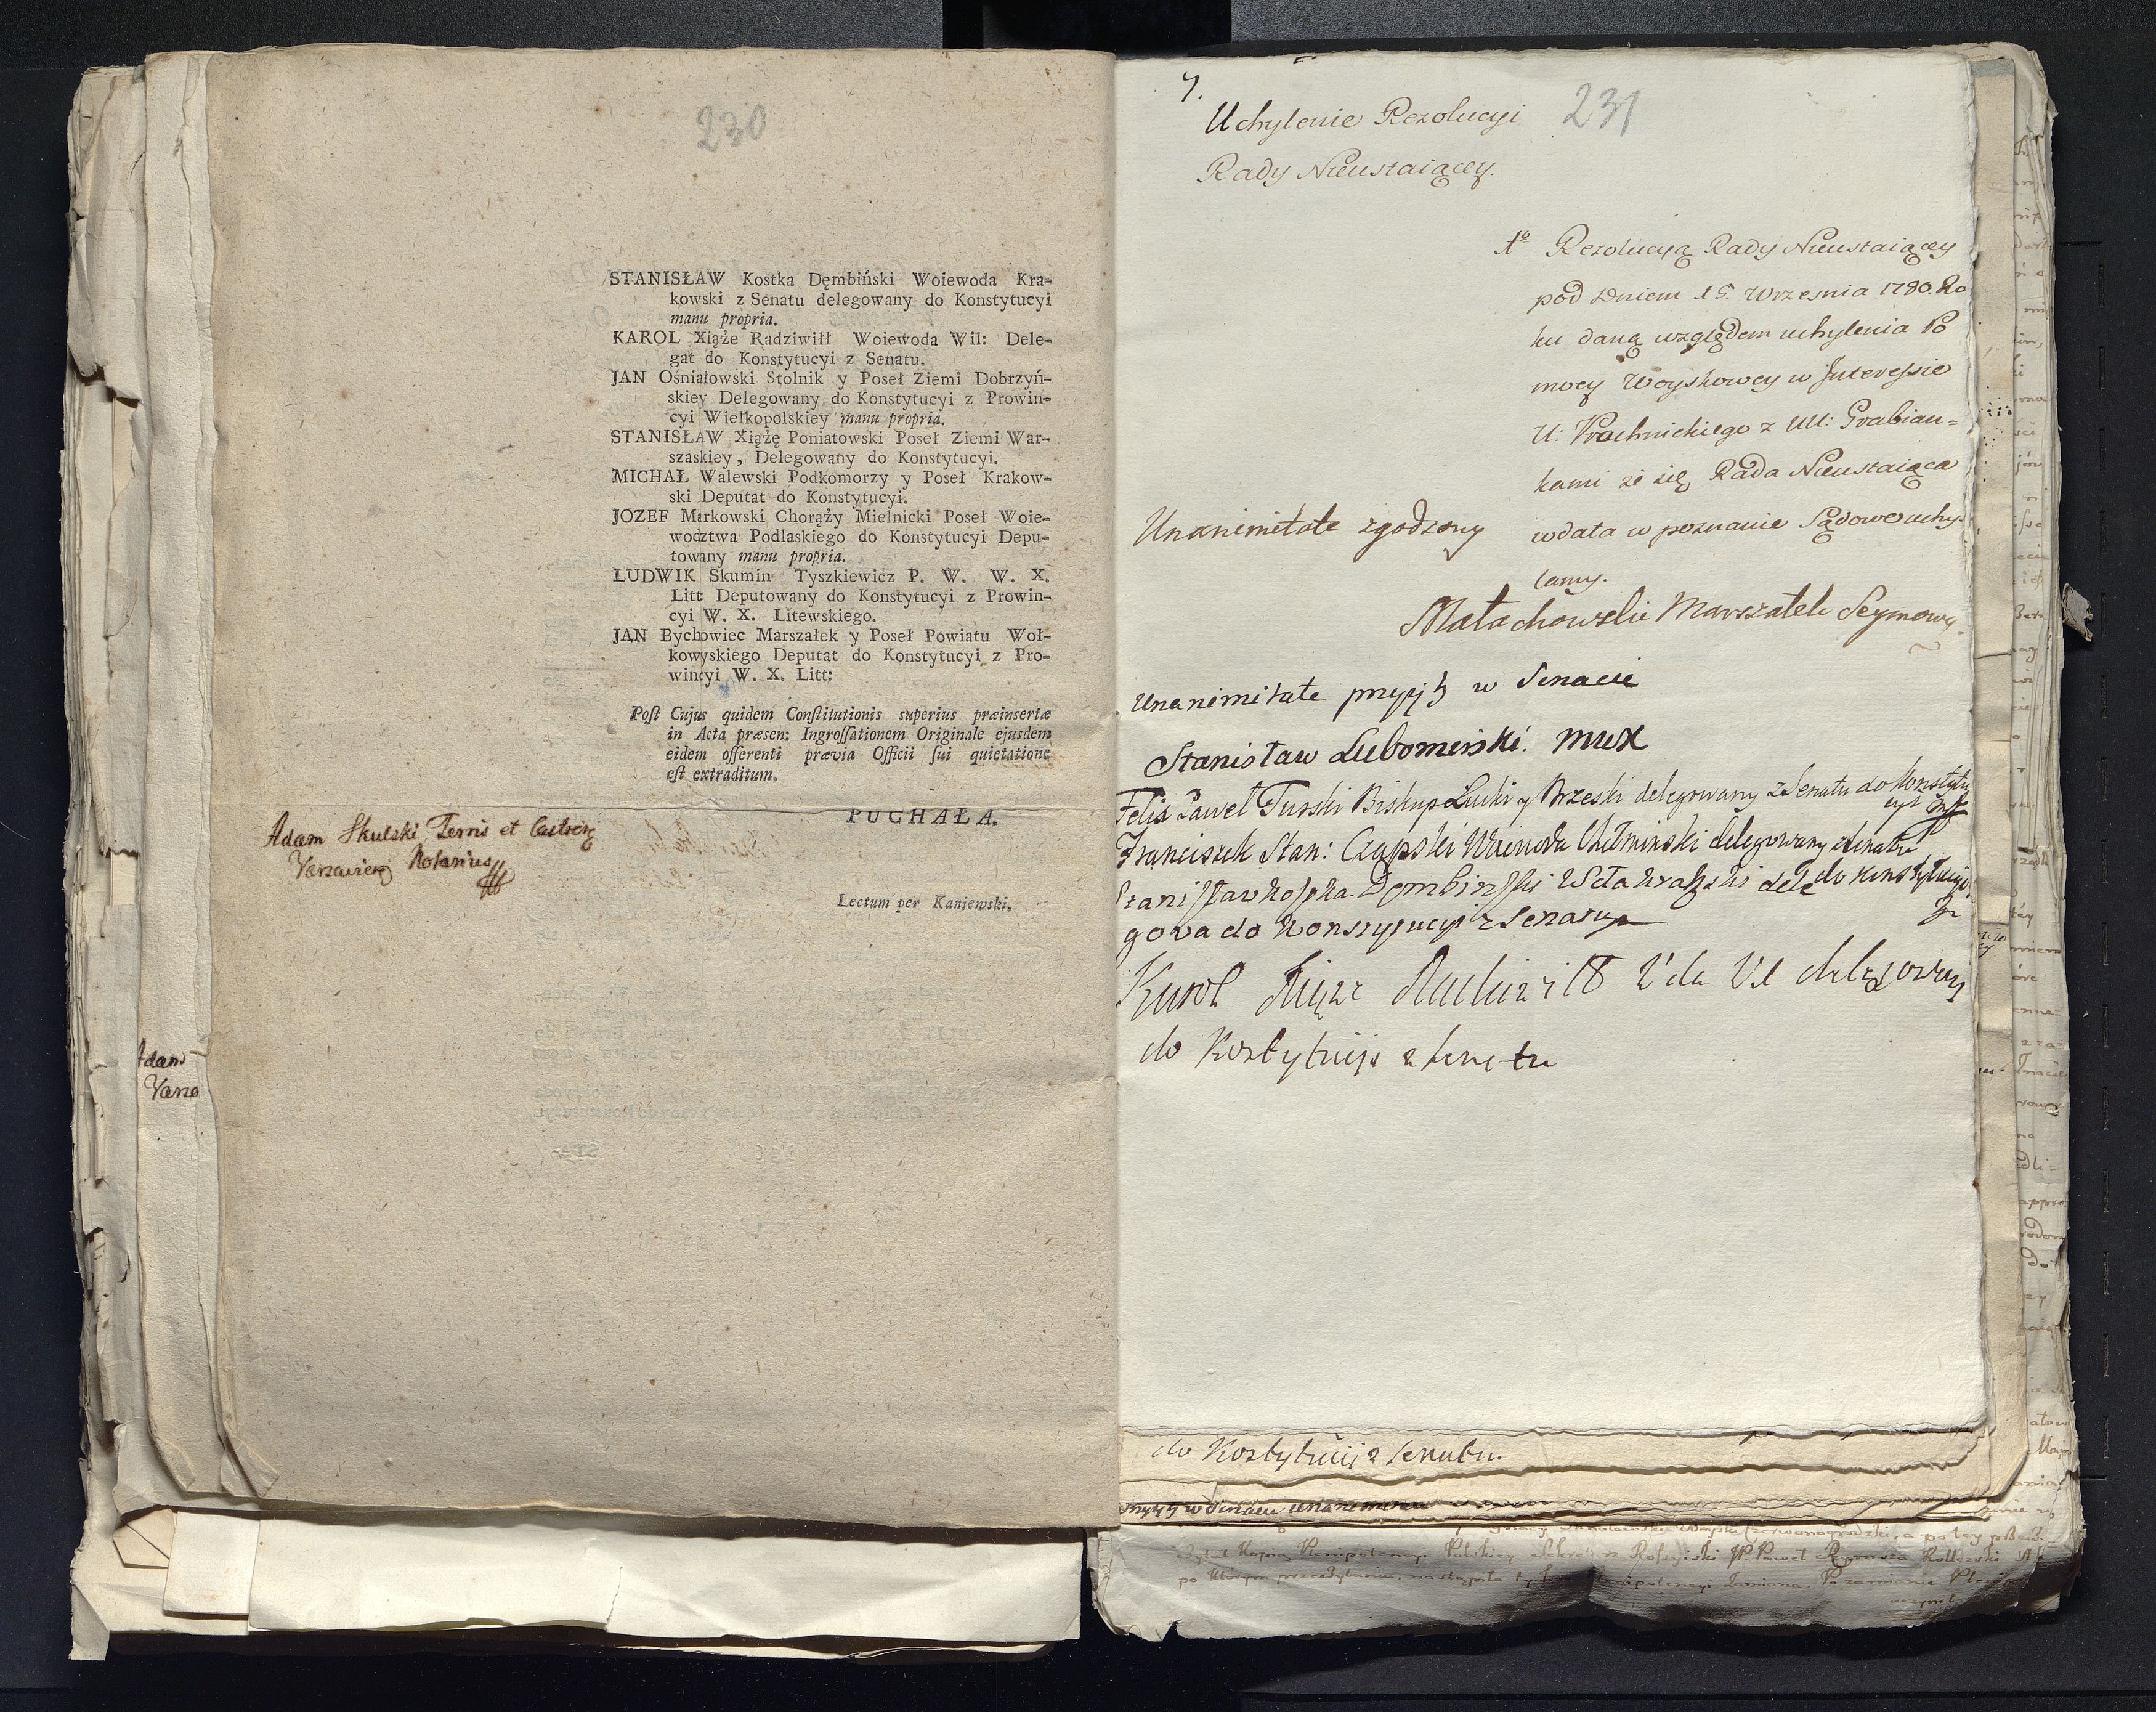 230
STANISŁAW Kostka Dęmbiński Woiewoda Kra-
kowski z Senatu delegowany do Konstytucyi
manu propria.
KAROL Xiąże Radziwiłł Woiewoda Wil: Dele-
gat do Konstytucyi z Senatu.
JAN Ośniałowski Stolnik y Poseł Ziemi Dobrzyń-
skiey Delegowany do Konstytucyi z Prowin-
cyi Wielkopolskiey manu propria.
STANISŁAW Xiążę Poniatowski Poseł Ziemi War-
szaskiey, Delegowany do Konstytucyi.
MICHAŁ Walewski Podkomorzy y Poseł Krakow-
ski Deputat do Konstytucyi.
JOZEF Mirkowski Chorąży Mielnicki Poseł Woie-
wodztwa Podlaskiego do Konstytucyi Depu-
towany manu propria.
LUDWIK Skumin Tyszkiewicz P. W. W. X.
Litt Deputowany do Konstytucyi z Prowin-
cyi W. X. Litewskiego.
JAN Bychowiec Marszałek y Poseł Powiatu Woł-
kowyskiego Deputat do Konstytucyi z Pro-
wincyi W. X. Litt:
Poſt Cujus quidem Conſtitutionis superius præinsertæ
in Acta præsen: Ingroſſationem Originale ejusdem
eidem offerenti prævia Officii ſui quietatione
eſt extraditum.
PUCHAŁA.
Adam Skulski Terris et Castren
Varsavien Notarius
Lectum per Kaniewski.
Adam
Varsa
7.
231
Uchylenie Rezolucyi
Rady Nieustaiącey.
1o Rezolucyą Rady Nieustaiącey
pod Dniem 15. Wrzesnia 1780. Ro
ku daną względem uchylenia Po
mocy Woyskowey w Interessie
U: Prochnickiego z UU: Grabian=
kami że się Rada Nieustaiąca
wdała w poznanie Sądowe uchy-
lamy.
Unanimitate zgodzony
Małachowski Marszałek Seymowy
Unanimitate przyjęty w Senacie
Stanisław Lubomirski. MWK
Felix Paweł Turski Biskup Łucki y Brzeski delegowany z Senatu do Konstytu
cyi
Franciszek Stan: Czapski Woiewoda Chełminski delegowany z Senatu
do Konstytucyi
Stanisław Kostka Dembinski Wda Krakski dele
gova do Konstytucyi z Senatu
Karol Xiąże Radziwiłł Wda Wil delegowany
do Kostytucji z Senatu
do Kostytucij z Senatu
przyięty w Senacie unanimitate